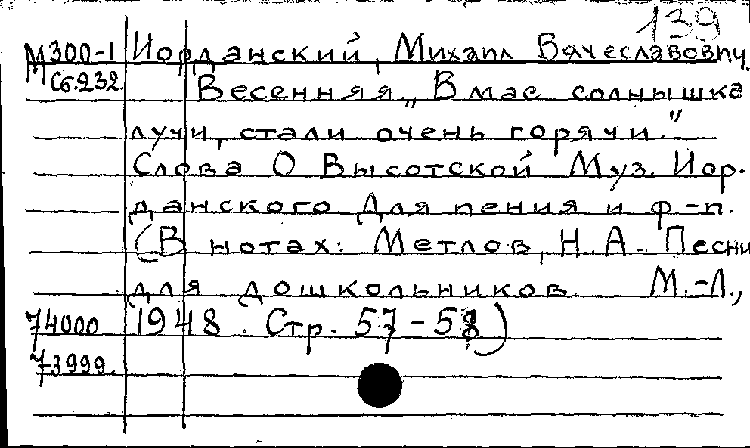 139
М300-1 Иорданский, Михаил Вячеславович.
Сб.232 Весенняя „В мае солнышка
лучи, стали очень горячи."
Слова О Высотской Муз. Иор-
данского Для пения и ф-п.
(В нотах: Метлов, Н.А. Песни
для дошкольников М.-Л.,
74000 1948. Стр. 57-58)
73999.